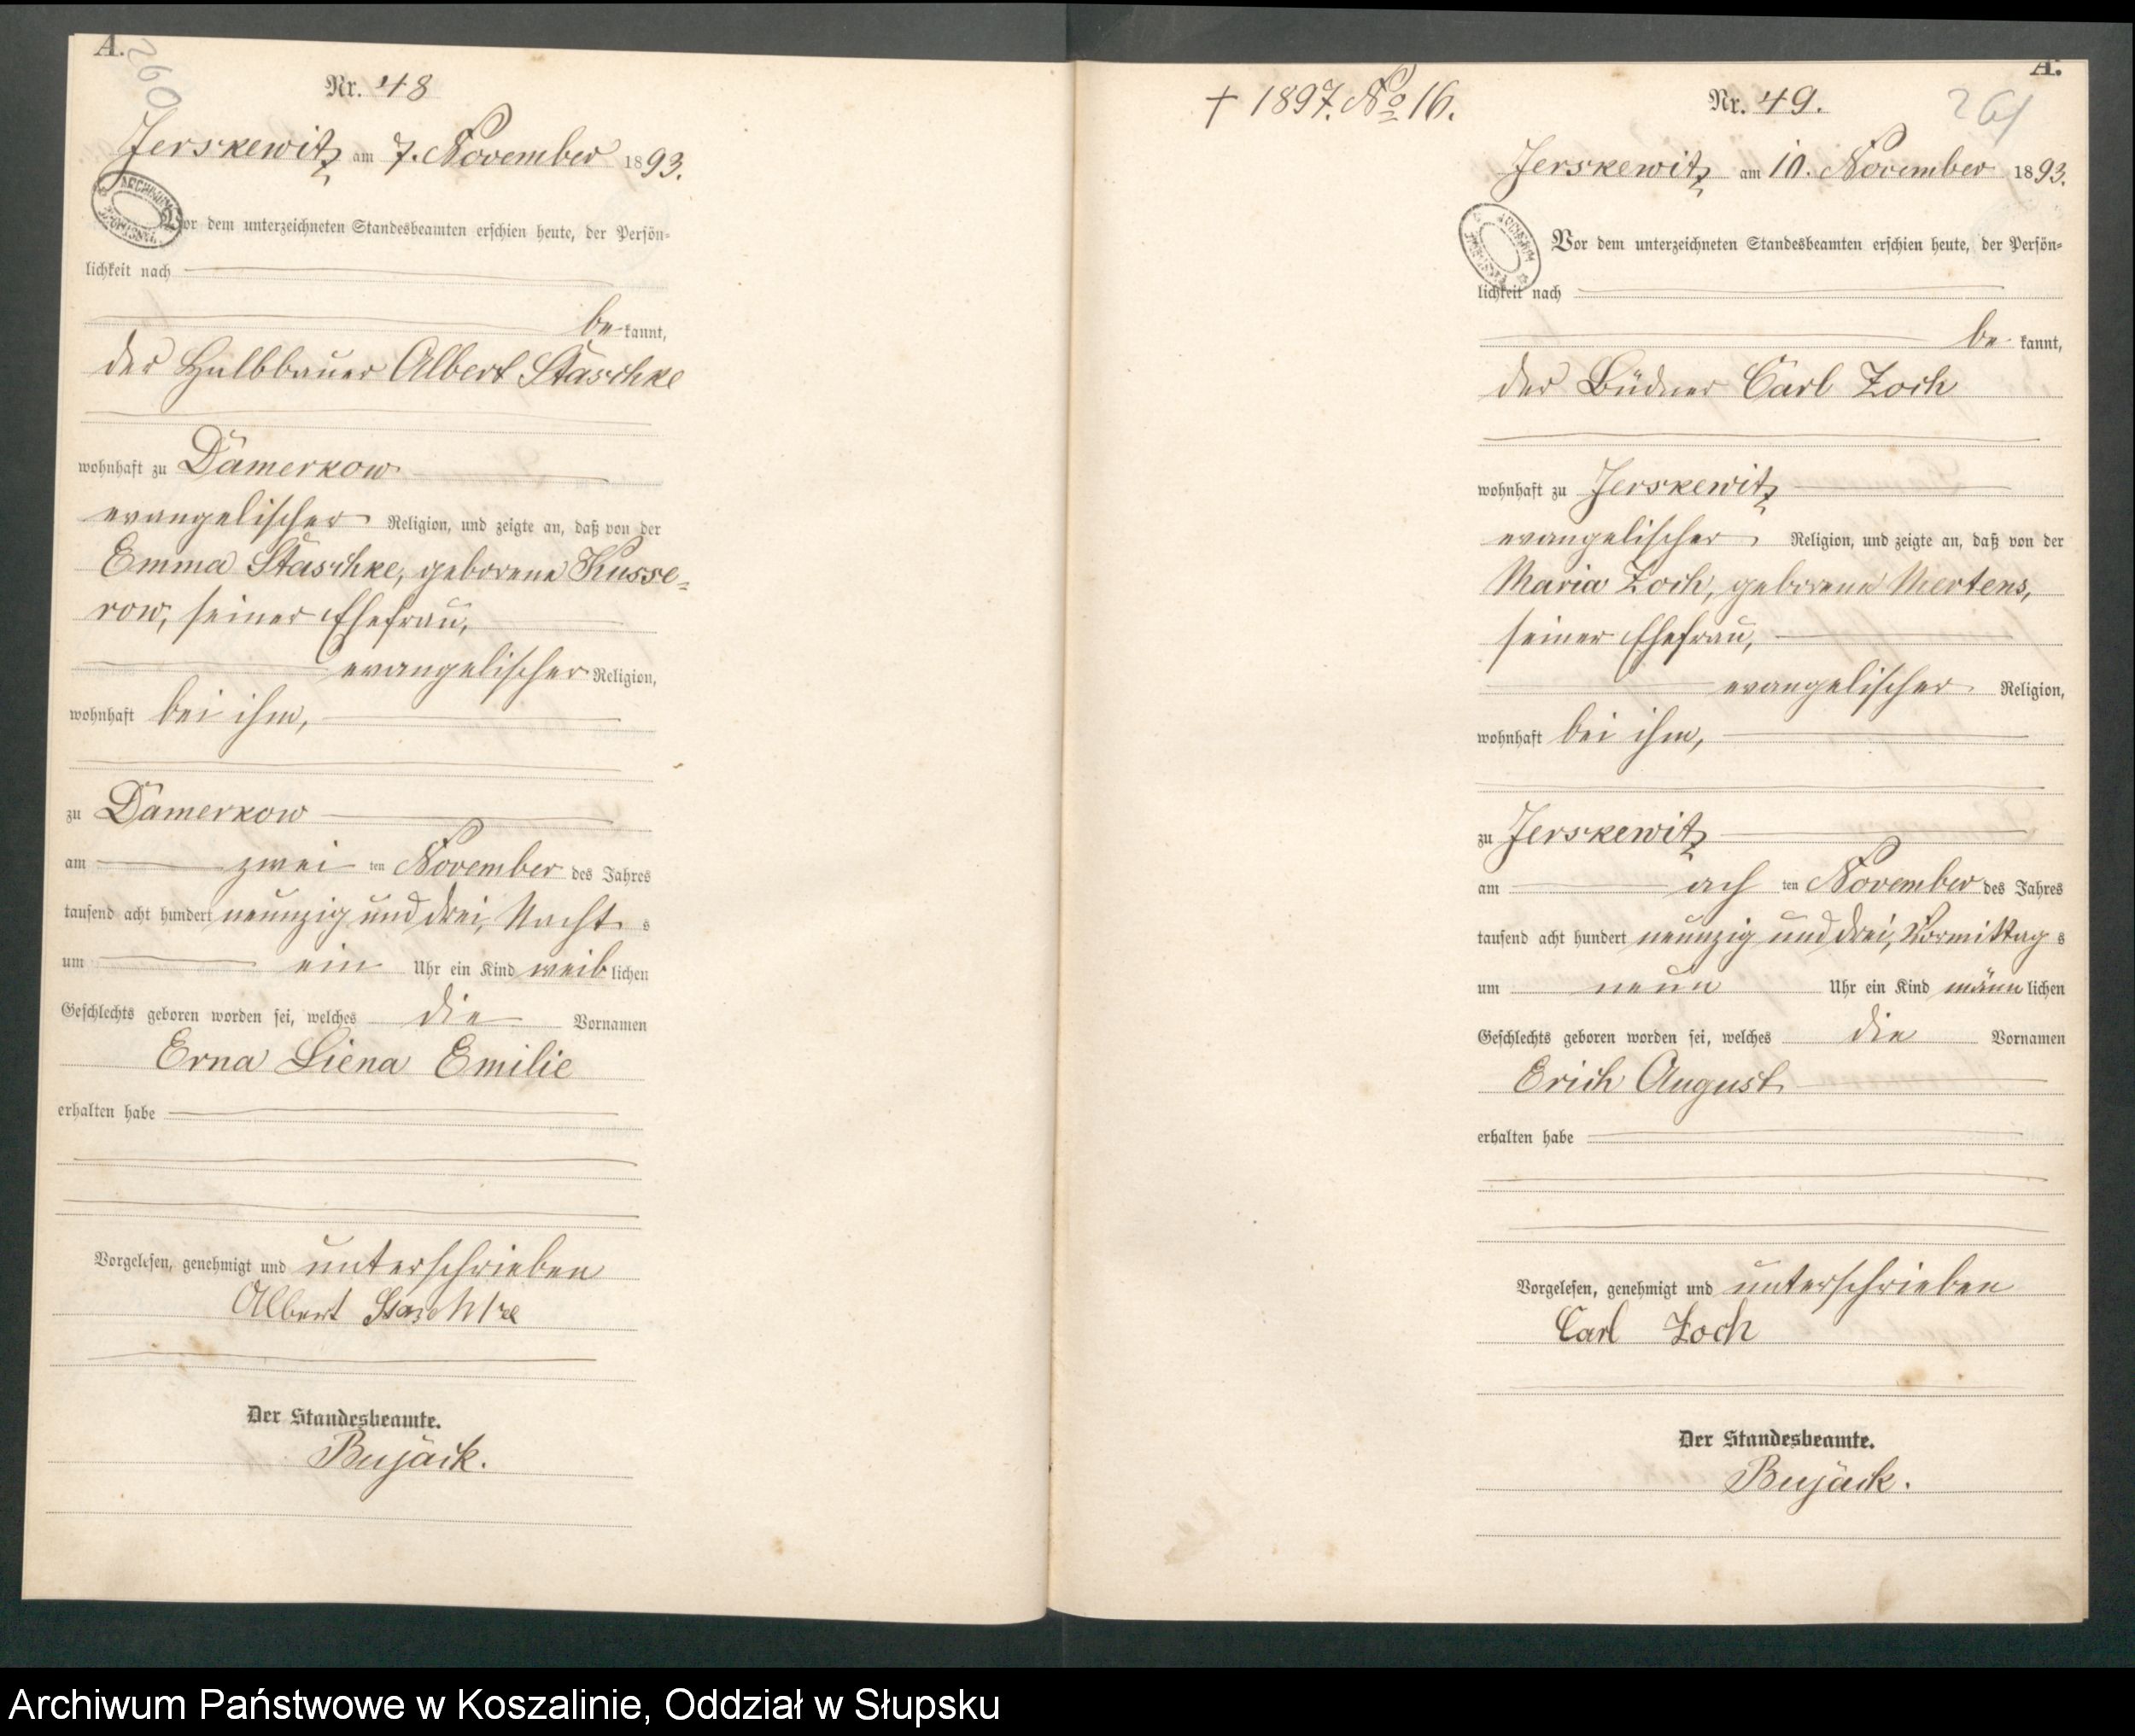 A.
260
Nr. 48
Jerskewitz am 7. November 1893.
Vor dem unterzeichneten Standesbeamten erschien heute, der Persön-
lichkeit nach
be kannt,
der Halbbauer Albert Staschke
wohnhaft zu Damerkow
evangelischer Religion, und zeigte an, daß von der
Emma Staschke, geborene Kusse-
row, seiner Ehefrau,
evangelischer Religion,
wohnhaft bei ihm,
zu Damerkow
am zwei ten November des Jahres
tausend acht hundert neunzig und drei, Nacht s
um ein Uhr ein Kind weib lichen
Geschlechts geboren worden sei, welches die Vornamen
Erna Liena Emilie
erhalten habe
Vorgelesen, genehmigt und unterschrieben
Albert Staschke
Der Standesbeamte.
Bujack.
† 1897. No 16.
A.
261
Nr. 49.
Jerskewitz am 10. November 1893.
Vor dem unterzeichneten Standesbeamten erschien heute, der Persön-
lichkeit nach
be kannt,
der Büdner Carl Zoch
wohnhaft zu Jerskewitz
evangelischer Religion, und zeigte an, daß von der
Maria Zoch, geborene Mertens,
seiner Ehefrau,
evangelischer Religion,
wohnhaft bei ihm,
zu Jerskewitz
am ach ten November des Jahres
tausend acht hundert neunzig und drei, Vormittag s
um neun Uhr ein Kind männ lichen
Geschlechts geboren worden sei, welches die Vornamen
Erich August
erhalten habe
Vorgelesen, genehmigt und unterschrieben
Carl Zoch
Der Standesbeamte.
Bujack.
Archiwum Państwowe w Koszalinie, Oddział w Słupsku